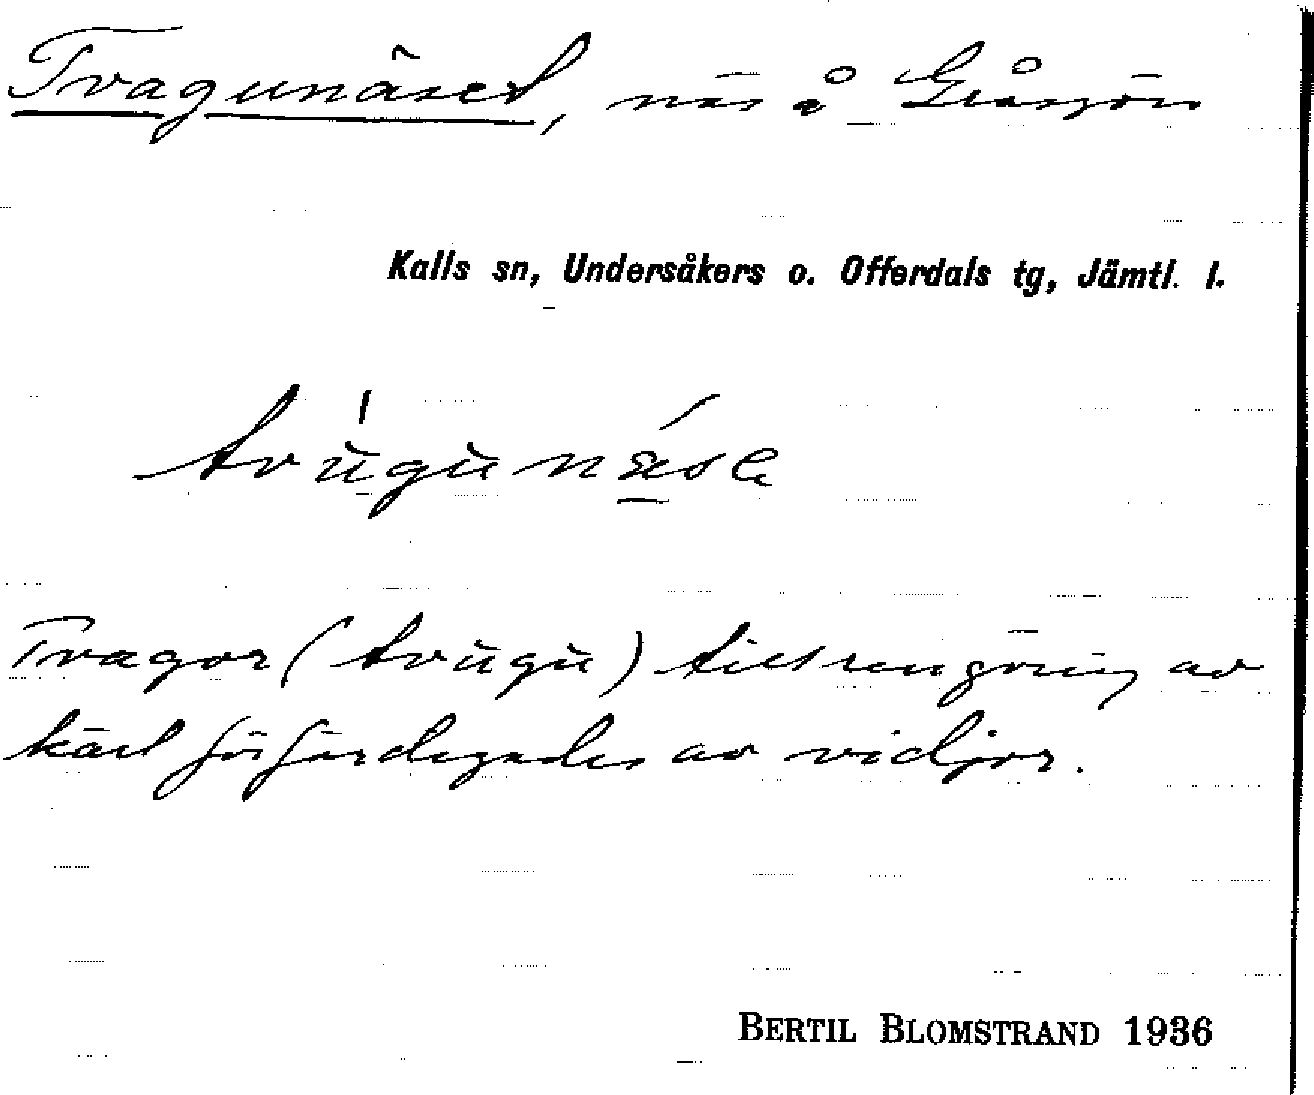 Tvagunäset, näs å Gråsjön
Kalls sn, Undersåkers o. Offerdals tg, Jämtl. l.
tvùgùnäse
Tvagor (tvùgù) till rengöring av
kärl förfärdigades av vidjor.
BERTIL BLOMSTRAND 1936